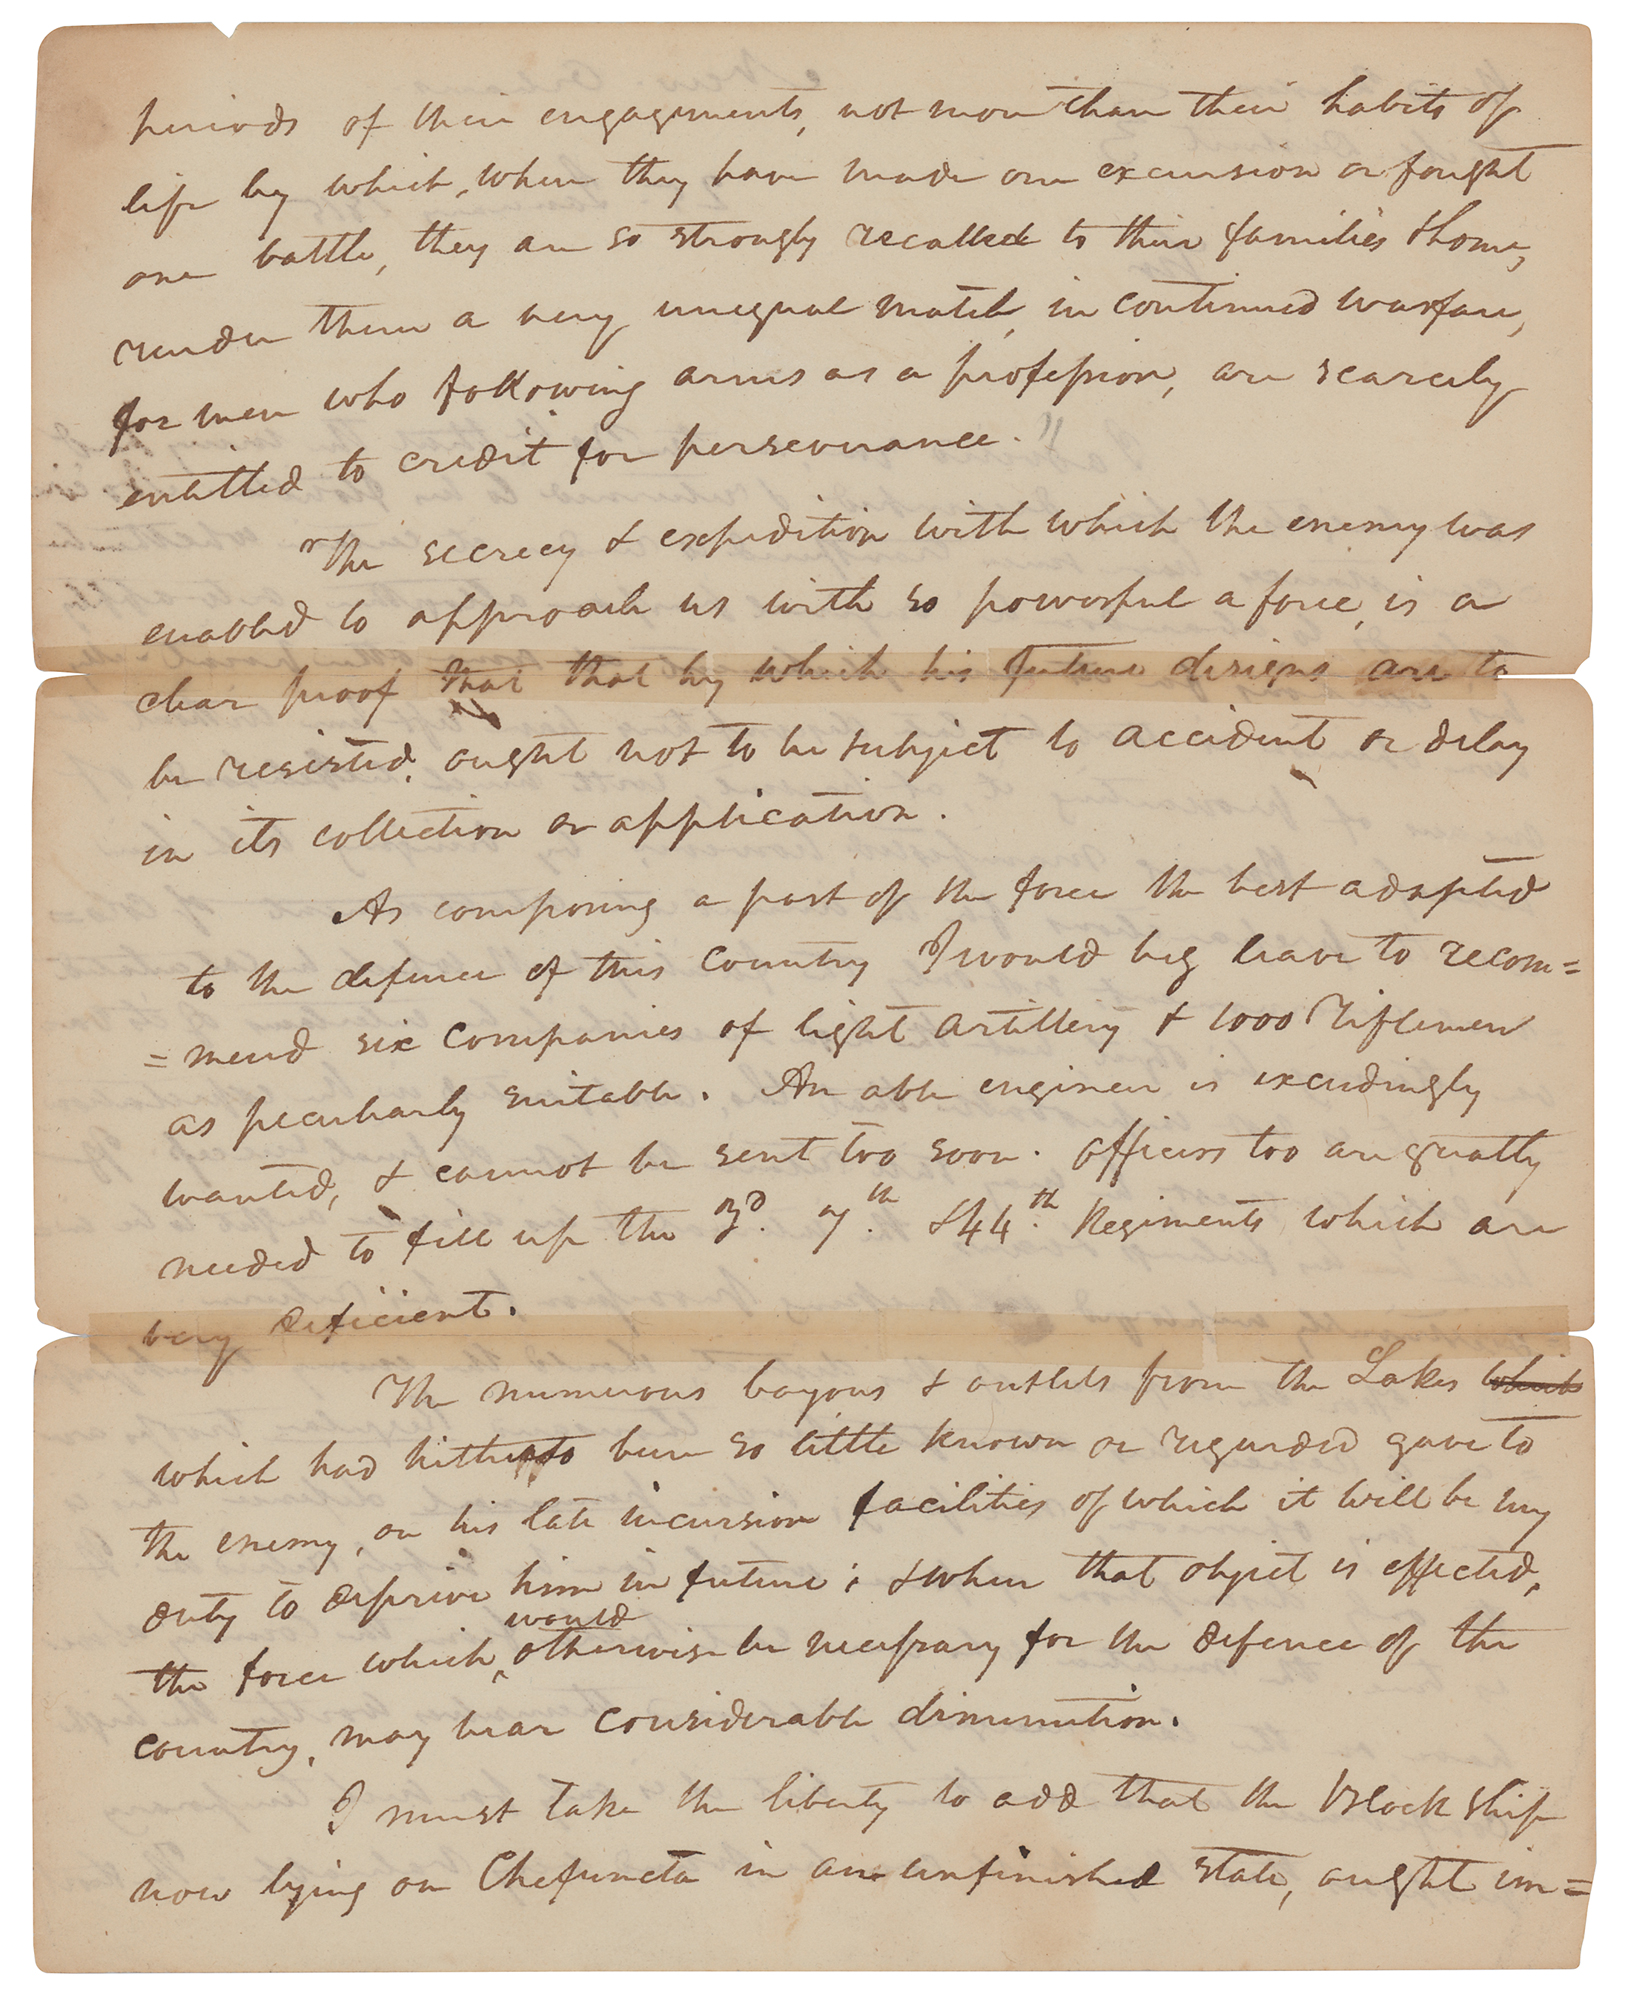 periods of their engagements, not more than their habits of
life by which, when they have made one excursion or fought
one battle, they are so strongly recalled to their families & home,
render them a very unequal match, in continued warfare,
for men who following arms as a profession, are scarcely
entitled to credit for perseverance."
"The secrecy & expedition with which the enemy was
enabled to approach us with so powerful a force, is a
clear proof that that by which his future designs are to
be resisted, ought not to be subject to accident or delay
in its collection or application.
As composing a part of the force the best adapted
to the defence of this country I would beg leave to recom=
=mend six companies of light artillery & 1000 Riflemen
as peculiarly suitable. An able engineer is exceedingly
wanted, & cannot be sent too soon. Officers too are greatly
needed to fill up the 3d. 7.th & 44.th Regiments which are
very deficient.
The numerous bayous & outlets from the Lakes which
which had hitherto been so little known or regarded gave to
the enemy, on his late incursion facilities of which it will be my
duty to deprive him in future; & when that object is effected,
would
the force which, otherwise be necessary for the defence of the
country, may bear considerable diminution.
I must take the liberty to add that the Block ship
now lying on Chefuncta in an unfinished state, ought im=